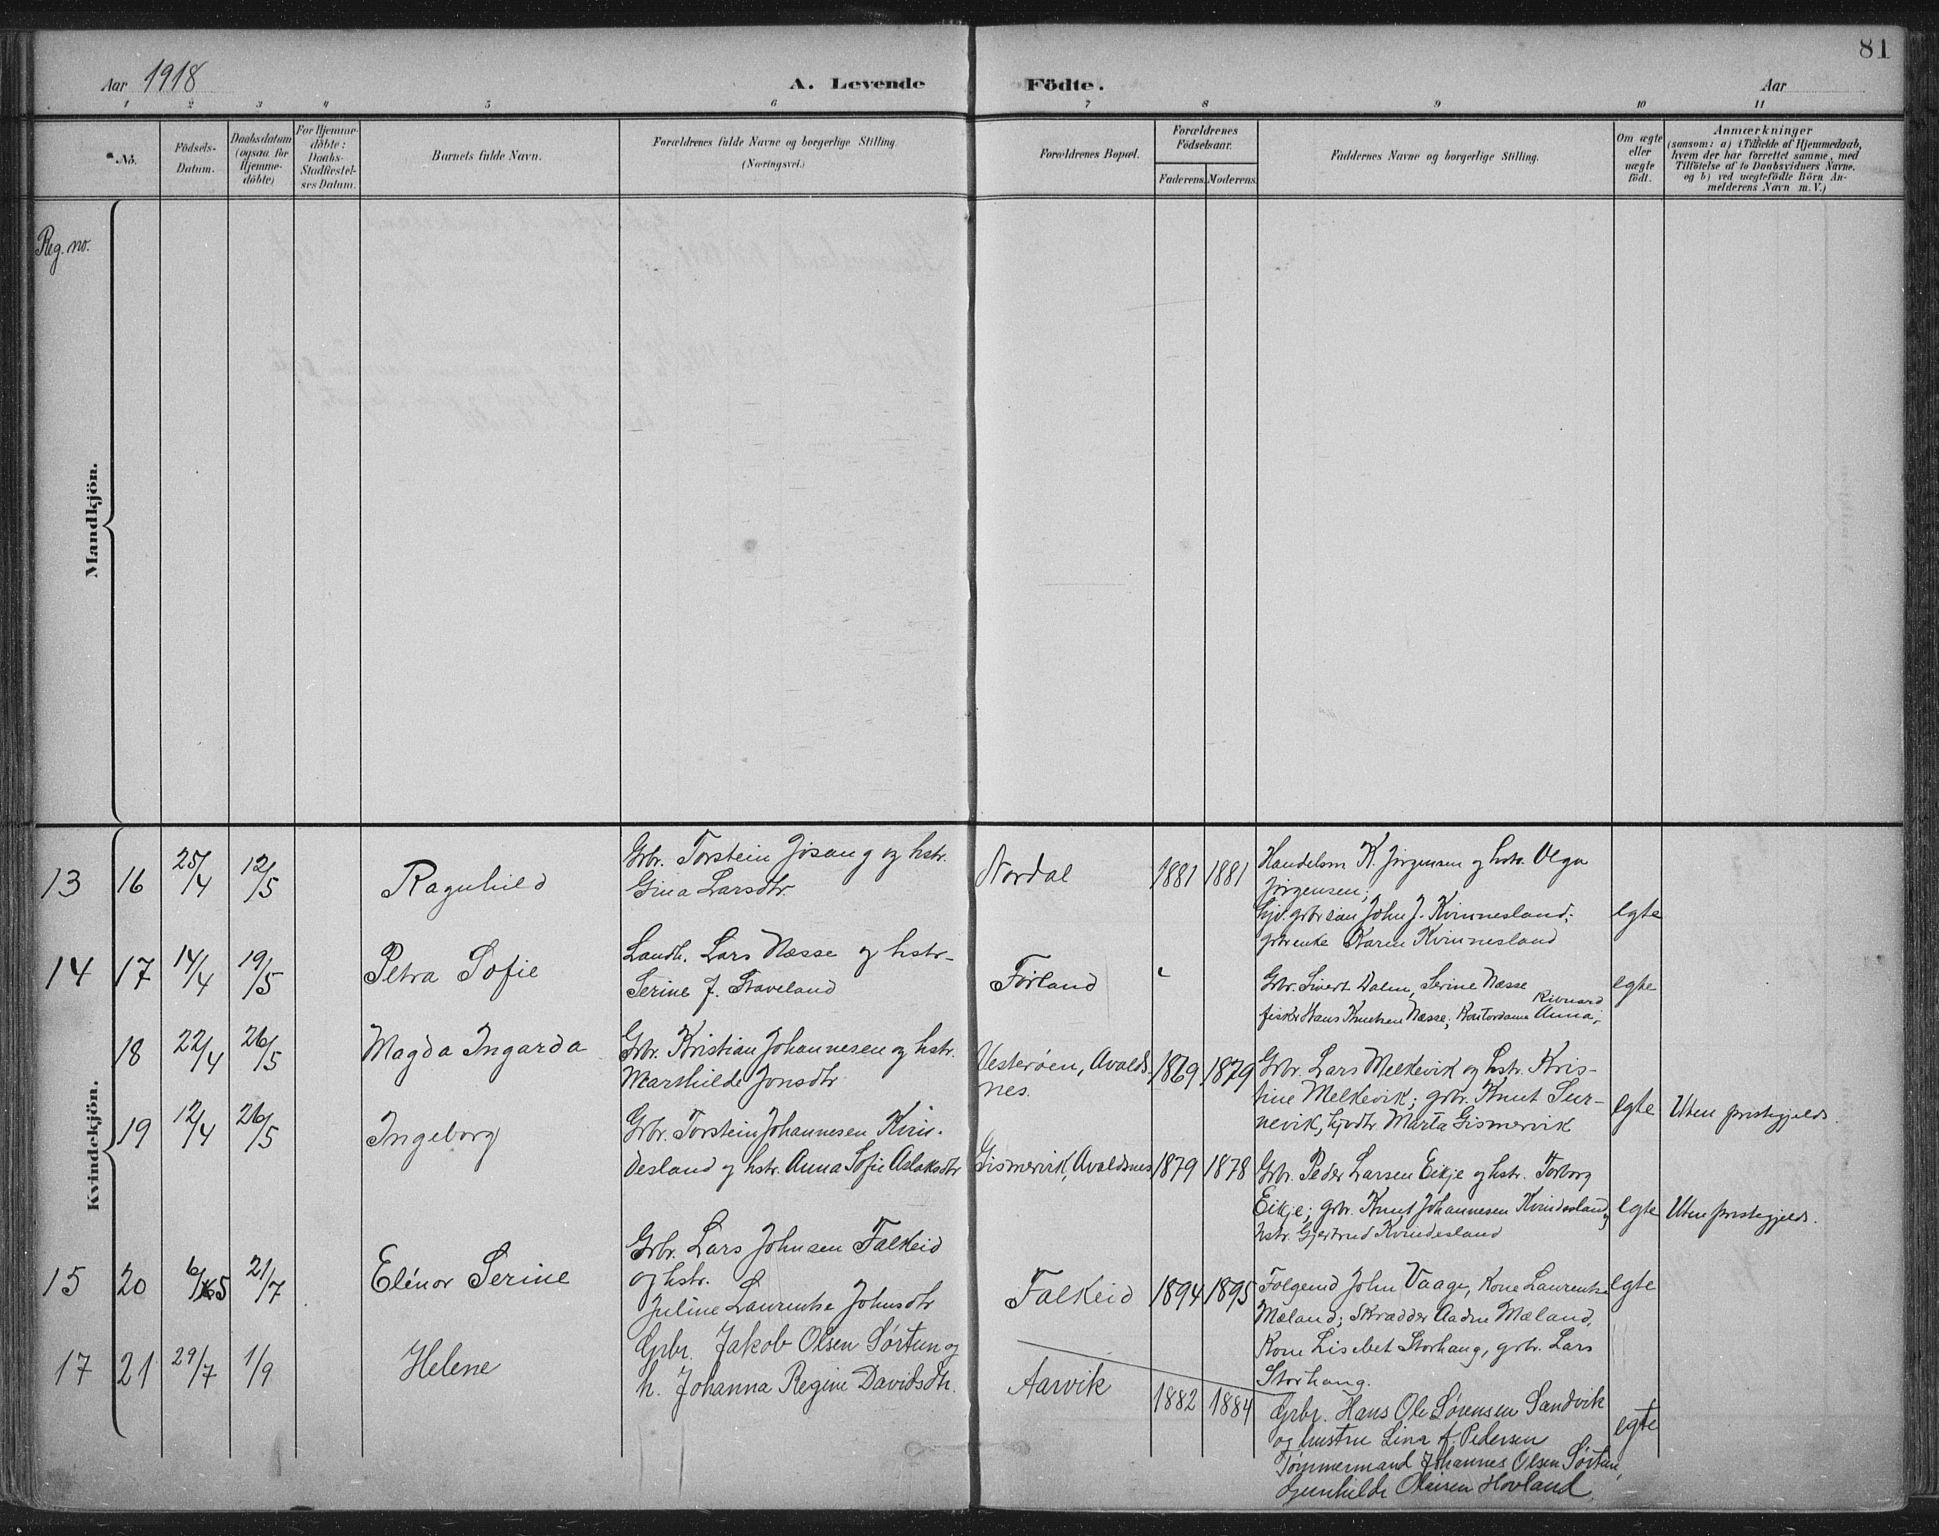 81
Aar 1918
A. Levende Födte.
Aar
1 2 3 4 5 6 7 8 9 10 11
No.
Födsels-
Datum.
Daabsdatum
(ogsaa for
Hjemme-
döbte)
For Hjemme-
döbte:
Daabs-
Stadfæstel-
ses Datum.
Barnets fulde Navn.
Forældrenes fulde Navne og borgerlige Stilling.
(Næringsvei.)
Forældrenes Bopæl.
Forældrenes
Födselsaar.
Faderens. Moderens.
Faddernes Navne og borgerlige Stilling.
Om ægte
eller
uægte
födt.
Anmærkninger
(saasom: a) i Tilfælde af Hjemmedaab,
hvem der har forrettet samme, med
Tilföielse af to Daabsvidners Navne.
og b) ved uægtefödte Börn An-
melderens Navn m. V.)
Reg. no.
Mandkjön.
Kvindekjön.
13 16 25/4 12/5 Ragnhild
Grbr. Torstein Jøsang og hstr.
Gina Larsdtr
Nordal 1881 1881
Handelsm K. Jørgensen og hstr. Olga
Jørgensen;
Gjv. grbrsøn John J. Kvinnesland;
grbrenke Karen Kvinnesland
egte
14 17 14/4 19/5 Petra Sofie
Landh. Lars Næsse og hstr.
Serine J. Staveland
Førland
Grbr. Sivert Dalen, Serine Næsse
fisker Hans Knutsen Næsse; Kontordame Anna
egte
18 22/4 26/5 Magda Ingarda
Grbr. Kristian Johannesen og hstr.
Marthilde Jonsdtr
Vesterøen, Avalds-
nes.
1869 1879
Grbr. Lars Melkevik og hstr. Kris-
tine Melkevik; grbr. Knut Sur-
nevik, hjvdtr. Marta Gismervik
egte Uten prestegjeld.
19 12/4 26/5 Ingeborg
Grbr. Torstein Johannesen Kvin-
desland og hstr. Anna Sofie Aslaksdtr
Gismervik, Avaldsnes 1879 1878
Grbr. Peder Larsen Eikje og hstr. Torborg
Eikje; grbr. Knut Johannesen Kvindesland og
hstr. Gjertrud Kvindesland
egte Uten prestegjeld.
15 20 6/5 21/7 Elénor Serine
Grbr. Lars Johnsen Falkeid
og hstr.
Juline Laurentse Johnsdtr
Falkeid 1894 1895
Folgemd John Vaage, Kone Laurentse
Mæland; Skrædder Aadne Mæland,
Kone Lisebet Storhaug, grbr. Lars
Storhaug.
egte
17 21 29/7 1/9 Helene
Grbr. Jakob Olsen Sørtun og
h. Johanna Regine Davidsdtr.
Aarvik 1882 1884
Grbr. Hans Ole Sørensen Sandvik
og hustru Lina A. Pedersen
Tømmermand Johannes Olsen Sørtun,
Gunhilde Olaisen Hovland.
egte